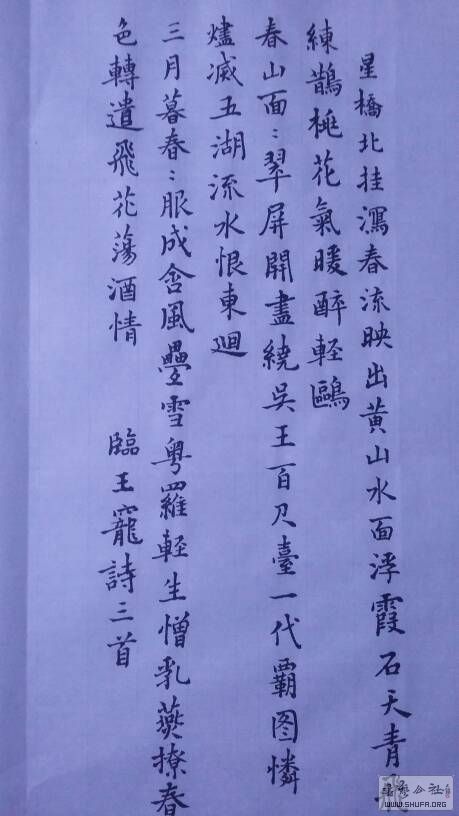 星橋北挂瀉春流映出黄山水面浮霞石天青飛
練鵲桃花氣暖醉軽鷗
春山面：翠屏開盡繞吳王百尺臺一代覇图憐
燼滅五湖流水恨東迴
三月暮春：服成含風疊雪粵羅軽生憎乳燕撩春
色轉遣飛花蕩酒情　臨王寵詩三首
WWW.SHUFA.ORG